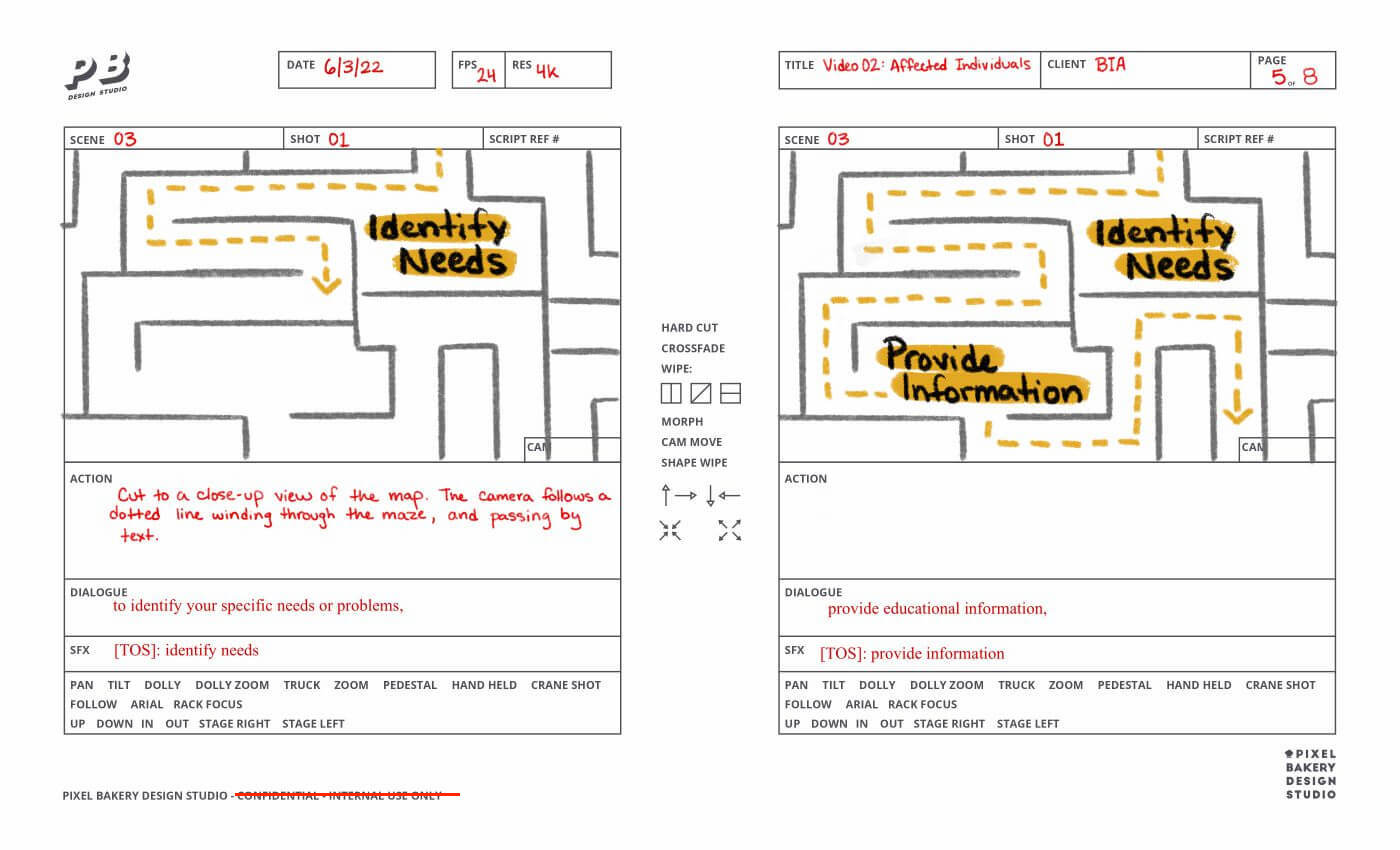 PB
DESIGN STUDIO
DATE 6/3/22
FPS 24
RES 4K
TITLE Video 02: Affected Individuals
CLIENT BIA
PAGE 5 OF 8
SCENE 03
SHOT 01
SCRIPT REF #
Identify
Needs
CAM
ACTION
Cut to a close-up view of the map. The camera follows a
dotted line winding through the maze, and passing by
text.
DIALOGUE
to identify your specific needs or problems,
SFX [TOS]: identify needs
PAN TILT DOLLY DOLLY ZOOM TRUCK ZOOM PEDESTAL HAND HELD CRANE SHOT
FOLLOW ARIAL RACK FOCUS
UP DOWN IN OUT STAGE RIGHT STAGE LEFT
HARD CUT
CROSSFADE
WIPE:
MORPH
CAM MOVE
SHAPE WIPE
SCENE 03
SHOT 01
SCRIPT REF #
Identify
Needs
Provide
Information
CAM
ACTION
DIALOGUE
provide educational information,
SFX [TOS]: provide information
PAN TILT DOLLY DOLLY ZOOM TRUCK ZOOM PEDESTAL HAND HELD CRANE SHOT
FOLLOW ARIAL RACK FOCUS
UP DOWN IN OUT STAGE RIGHT STAGE LEFT
PIXEL BAKERY DESIGN STUDIO - CONFIDENTIAL - INTERNAL USE ONLY
PIXEL
BAKERY
DESIGN
STUDIO